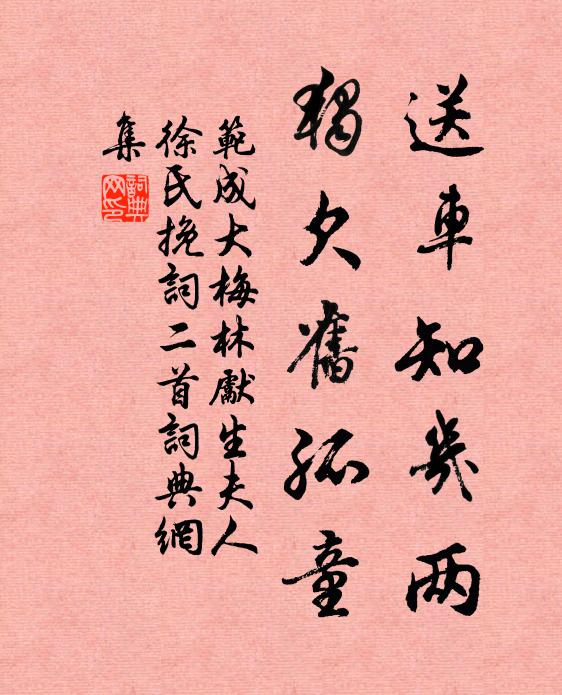 送車知幾兩
獨欠舊孤童
範成大梅林獻生夫人
徐氏挽詞二首詞典網
集
詞典
网印